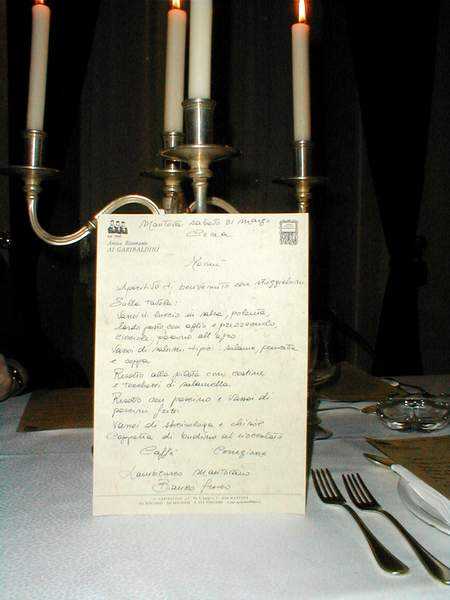 Mantova sabato 31 marzo
Cena
Antico Ristorante
AI GARIBALDINI
Menù
Aperitivo di benvenuto con stuzzichini
Sulla tavola:
Vassoi di luccio in salsa, polenta,
lardo pesto con aglio e prezzemolo
cipolle all'agro
Vassoi di salumi tipici: salame, pancetta
e coppa
Risotto alla pilota con costine
e di salamella
Risotto con porcino e vassoi di
porcini fritti
Vassoi di sbrisolona e
Coppetta di budino al cioccolato
Caffè Correzione
Lambrusco Mantovano
Bianco